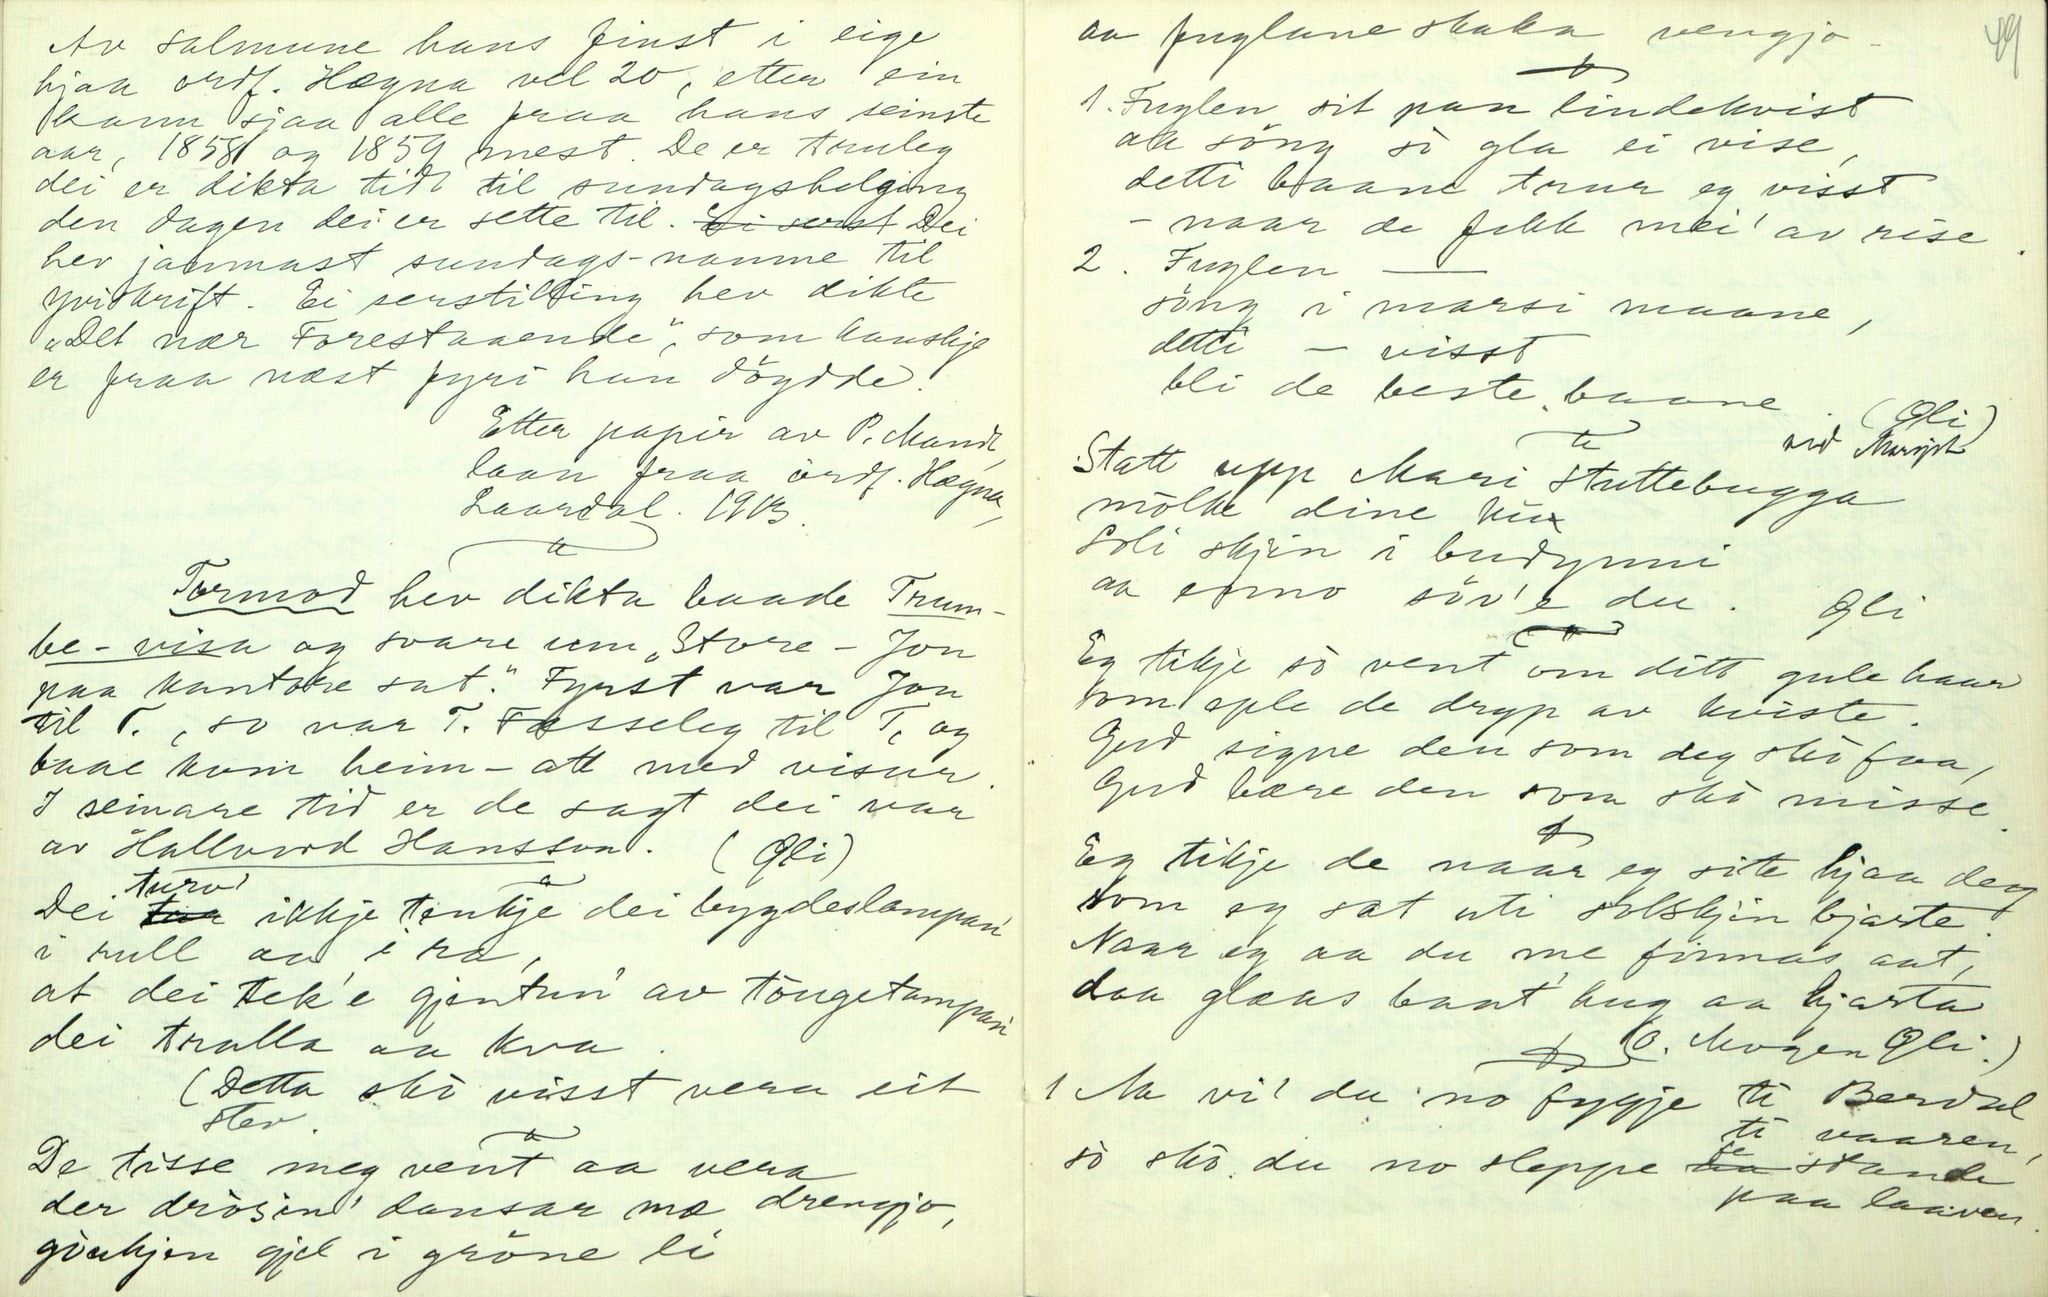 Av salmune hans finst i eige
hjaa ordf. Hægna vel 20, etter ein
kann sjaa alle fraa hans seinste
aar, 1858 og 1859 mest. De er truleg
dei er dikta tidt til sundagshelging
den dagen dei er sette til. Dei
hev jammast sundags-namne til
yviskrift. Ei serstilling hev dikte
"Det nær Forestaaende", som kanskje
er fraa næst fyri han döydde.
Etter papir av P. Mandt,
laan fraa ordf. Hægna,
Laardal. 1913.
Tormod hev dikta baade Trum-
be-visa og svare um "Store-Jon
paa kantore sat." Fyrst var Jon
til T., so var T. Fosseleg til T, og
baae kom heim-att med visur.
I seinare tid er de sagt dei var
av Hallvord Hansson. (Gli)
Dei turv' ikkje tenkje dei bygdeslampan'
i rull aa i ra,
at dei tek'e gjentun' av töngetampan'
dei tralla aa kva.
(Detta skò visst vera eit
stev.
De tisse meg vent aa vera
der dròsin' dansar mæ drengjo,
gòukjen gjel i gröne li
aa fuglane skaka vengjo
49
1. Fuglen sit paa lindekvist
aa söng sò gla ei vise,
detti baane trur eg visst
- naar de fekk mei' av rise.
2. Fuglen —
söng i marsi maane,
detti — visst
bli de beste baane. (Gli)
Statt upp Mari Stuttebugga
mölke dine kui
Soli skjin i budynni
aa enno söv'e du. Gli
Eg tikje sò vent om ditt gule haar
som eple de dryp av kviste.
Gud signe den som deg skò faa,
Gud bære den som skò misse.
Eg tikje de naar eg site hjaa deg
som eg sat uti solskjin bjarte.
Naar eg aa du me finnas aat,
daa glæas baat' hug aa hjarta
(O. Mogen Gli.)
1 Aa vi' du no fygje ti Berdal
ti vaaren,
sò skò du no sleppe te stande
paa laaven.